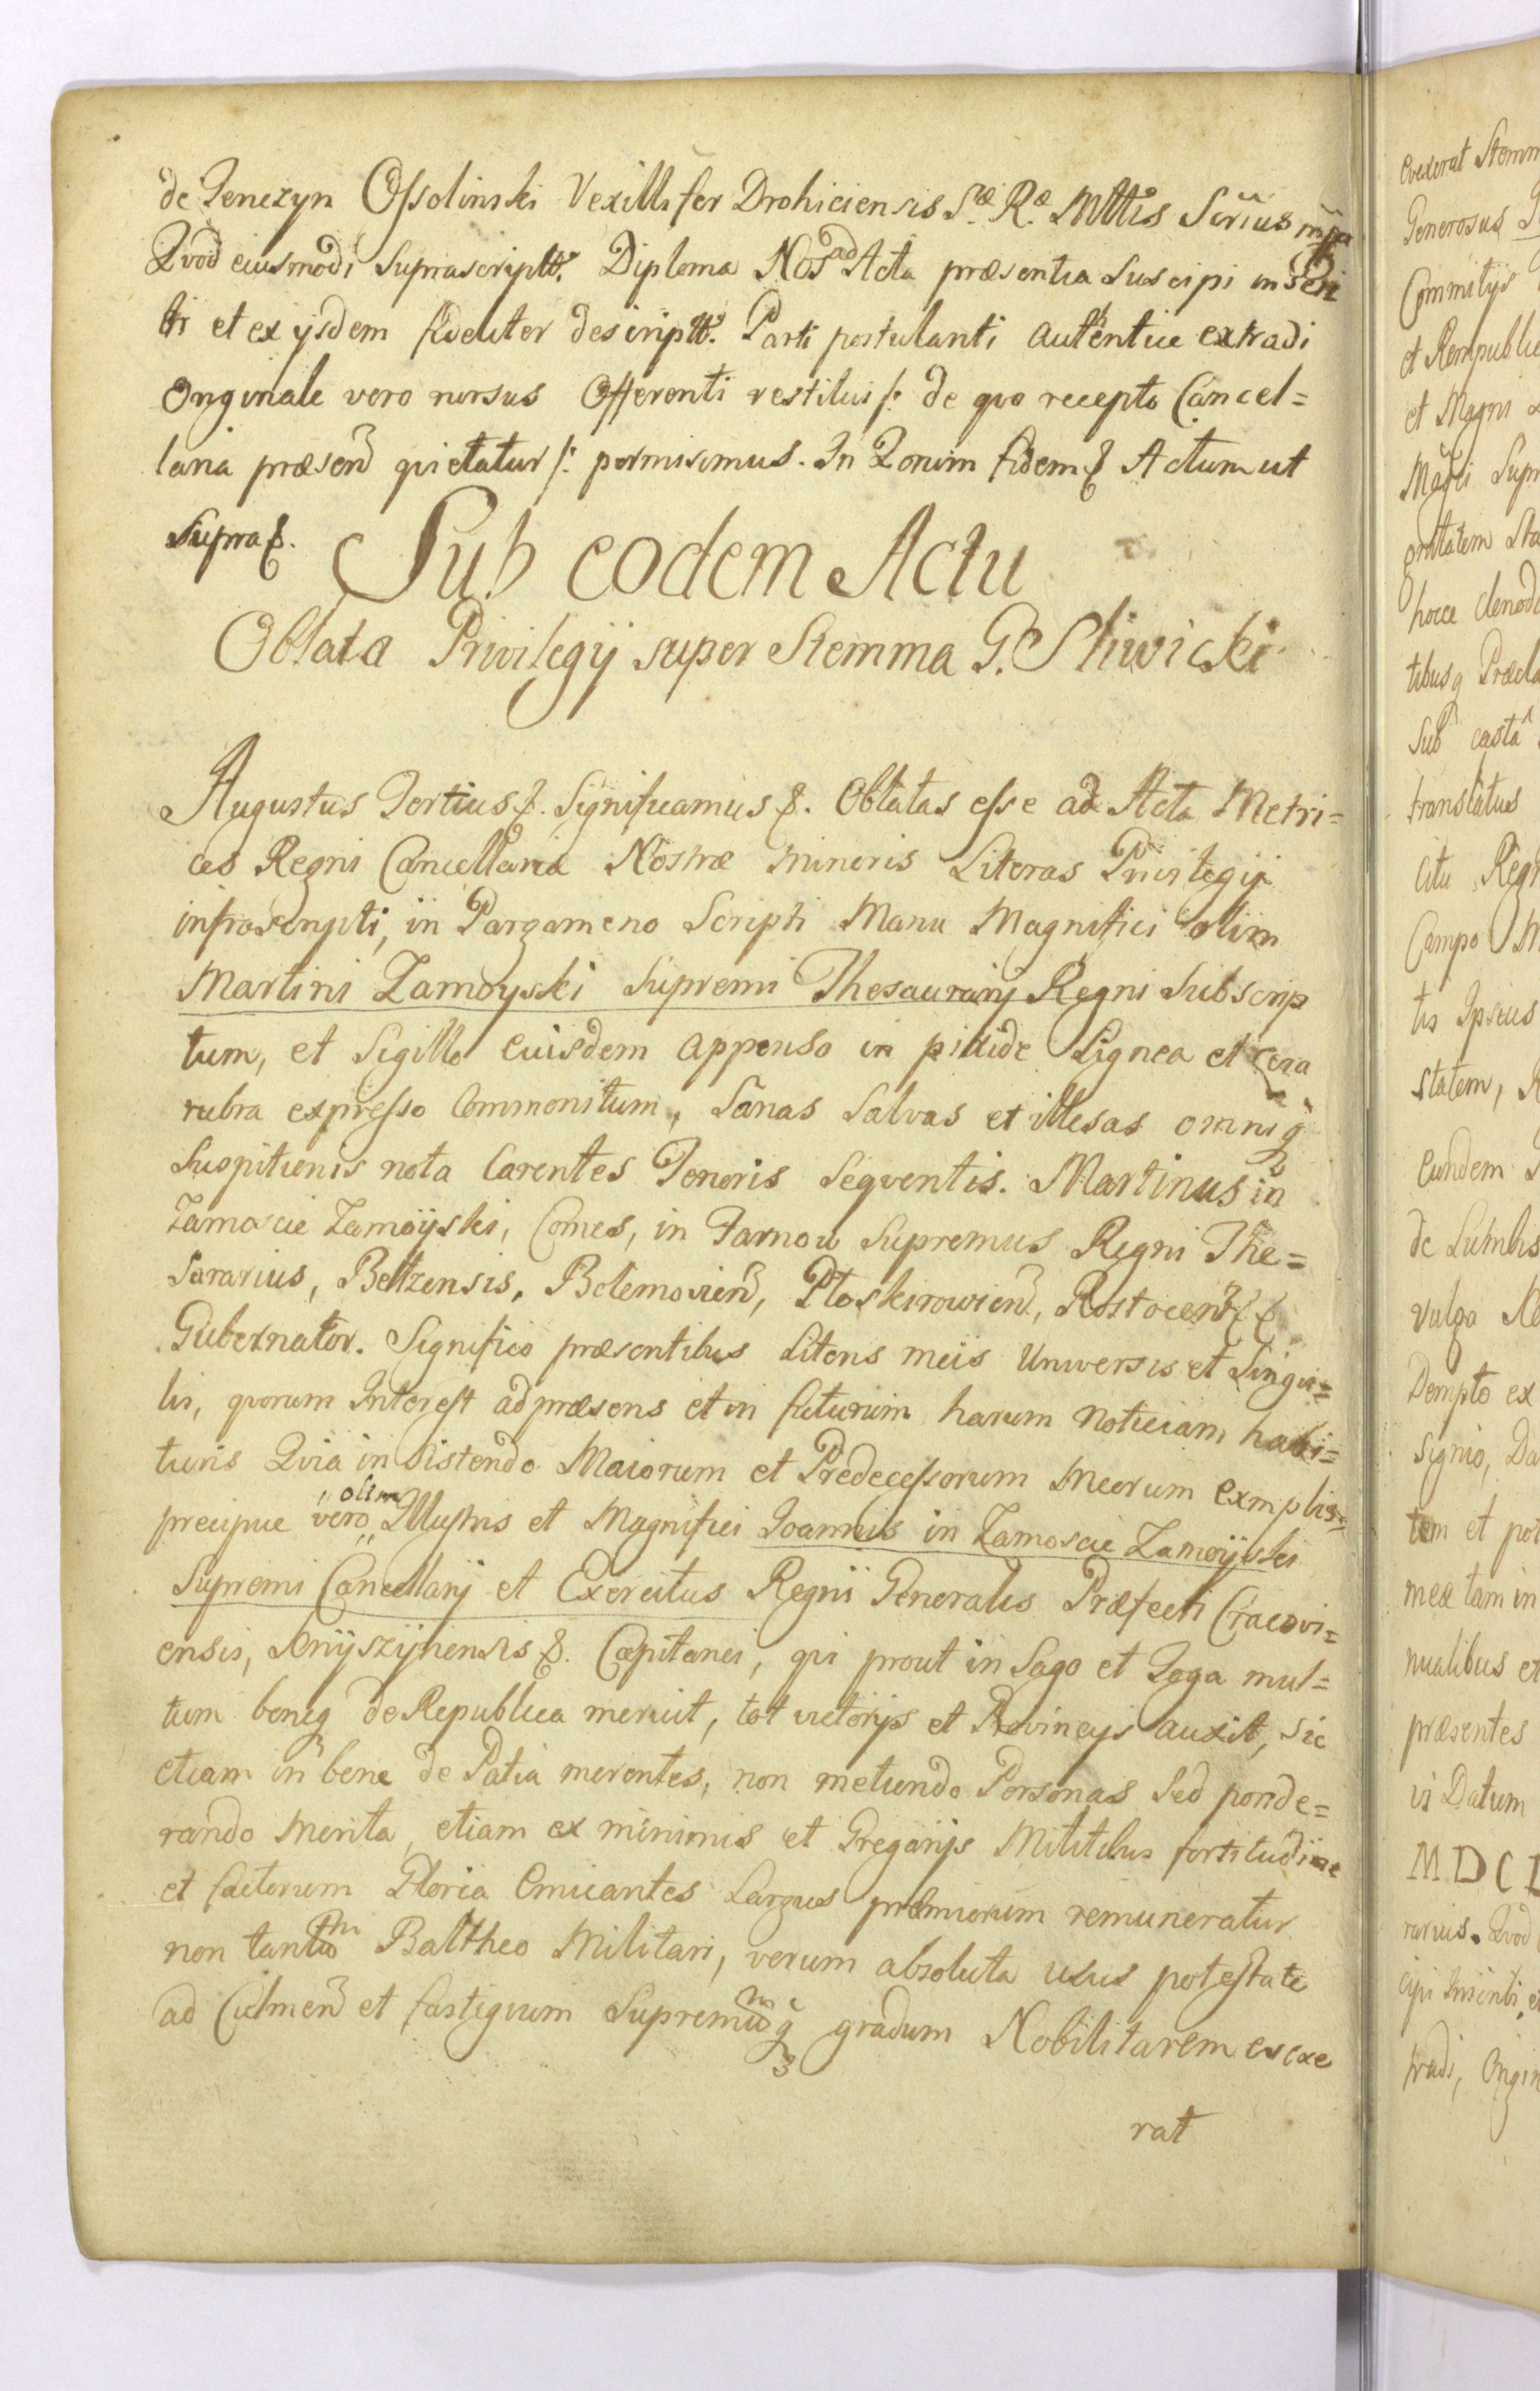 de Tenczyn Ossolinski Vexillifer Drohiciensis S.æ R.æ Mttis Scrius mp
Qvod eiusmodi suprascriptt. Diploma Nos ad Acta præsentia suscipi inseri
ti et ex ijsdem fideliter descriptt. Parti postulanti autentice extradi
Originale vero rursus Offerenti restitui /: de quo recepto Cancel=
laria præsen quietatur /: permisimus. In Qorum fidem & Actum ut
supra &.
Sub eodem Actu
Oblata Privilegij super Stemma G. Sliwicki
Augustus Tertius &. Significamus &. Oblatas esse ad Acta Metri=
ces Regni Cancellariæ Nostræ minoris Literas Privilegij
infrascripti, in Pargameno Scripti Manu Magnifici olim
Martini Zamoyski Supremi Thesaurarij Regni Subscrip
tum, et Sigillo Eiusdem appenso in pixide Lignea et Cera
rubra expresso Commonitum, Sanas Salvas et illesas omniq
Suspitionis nota Carentes Tenoris Seqventis. Martinus in
Zamoscie Zamoÿski, Comes, in Tarnow Supremus Regni The=
saurarius, Beltzensis, Bolemovien, Ploskirowien, Rostocen &&
Gubernator. Significo præsentibus Literis meis Universis et Singu=
lis, quorum Interest ad præsens et in futurum harum noticiam habi=
turis Qvia insistendo Maiorum et Predecessorum meorum Exmplis=
precipue vero olim Illustris et Magnifici Joannis in Zamoscie Zamoÿski
Supremi Cancellarij et Exercitus Regni Generalis Præfecti Cracovi=
ensis, Knÿszÿnensis &. Capitanei, qui prout in Sago et Toga mul=
tum beneq de Republica meruit, tot victorijs et Provincijs auxit, sic
etiam in bene de Patia merentes, non metiendo Personas sed ponde=
rando Merita, etiam ex minimis et Gregarijs Militibus fortitudine
et factorum Gloria Emicantes Largus præmiorum remuneratur
non tantum Baltheo Militari, verum absoluta usus potestate
ad Culmen et fastigium Supremumq gradum Nobilitarem evexe
rat
evexerat Stemm
Generosus
Commitijs
et Rempublic
et Magni
Supr
hocce
tibusq Præcla
Sub casta
translatus
citu Regn
Campo M
tis Ipsius
statem,
Eundem
de
vulgo
Dempto ex
signio, Da
tem et pot
meæ tam in
nualibus et
præsentes
is Datum
MDCL
rarius. Qvod
cipi Inseribi, et
tradi, Origin